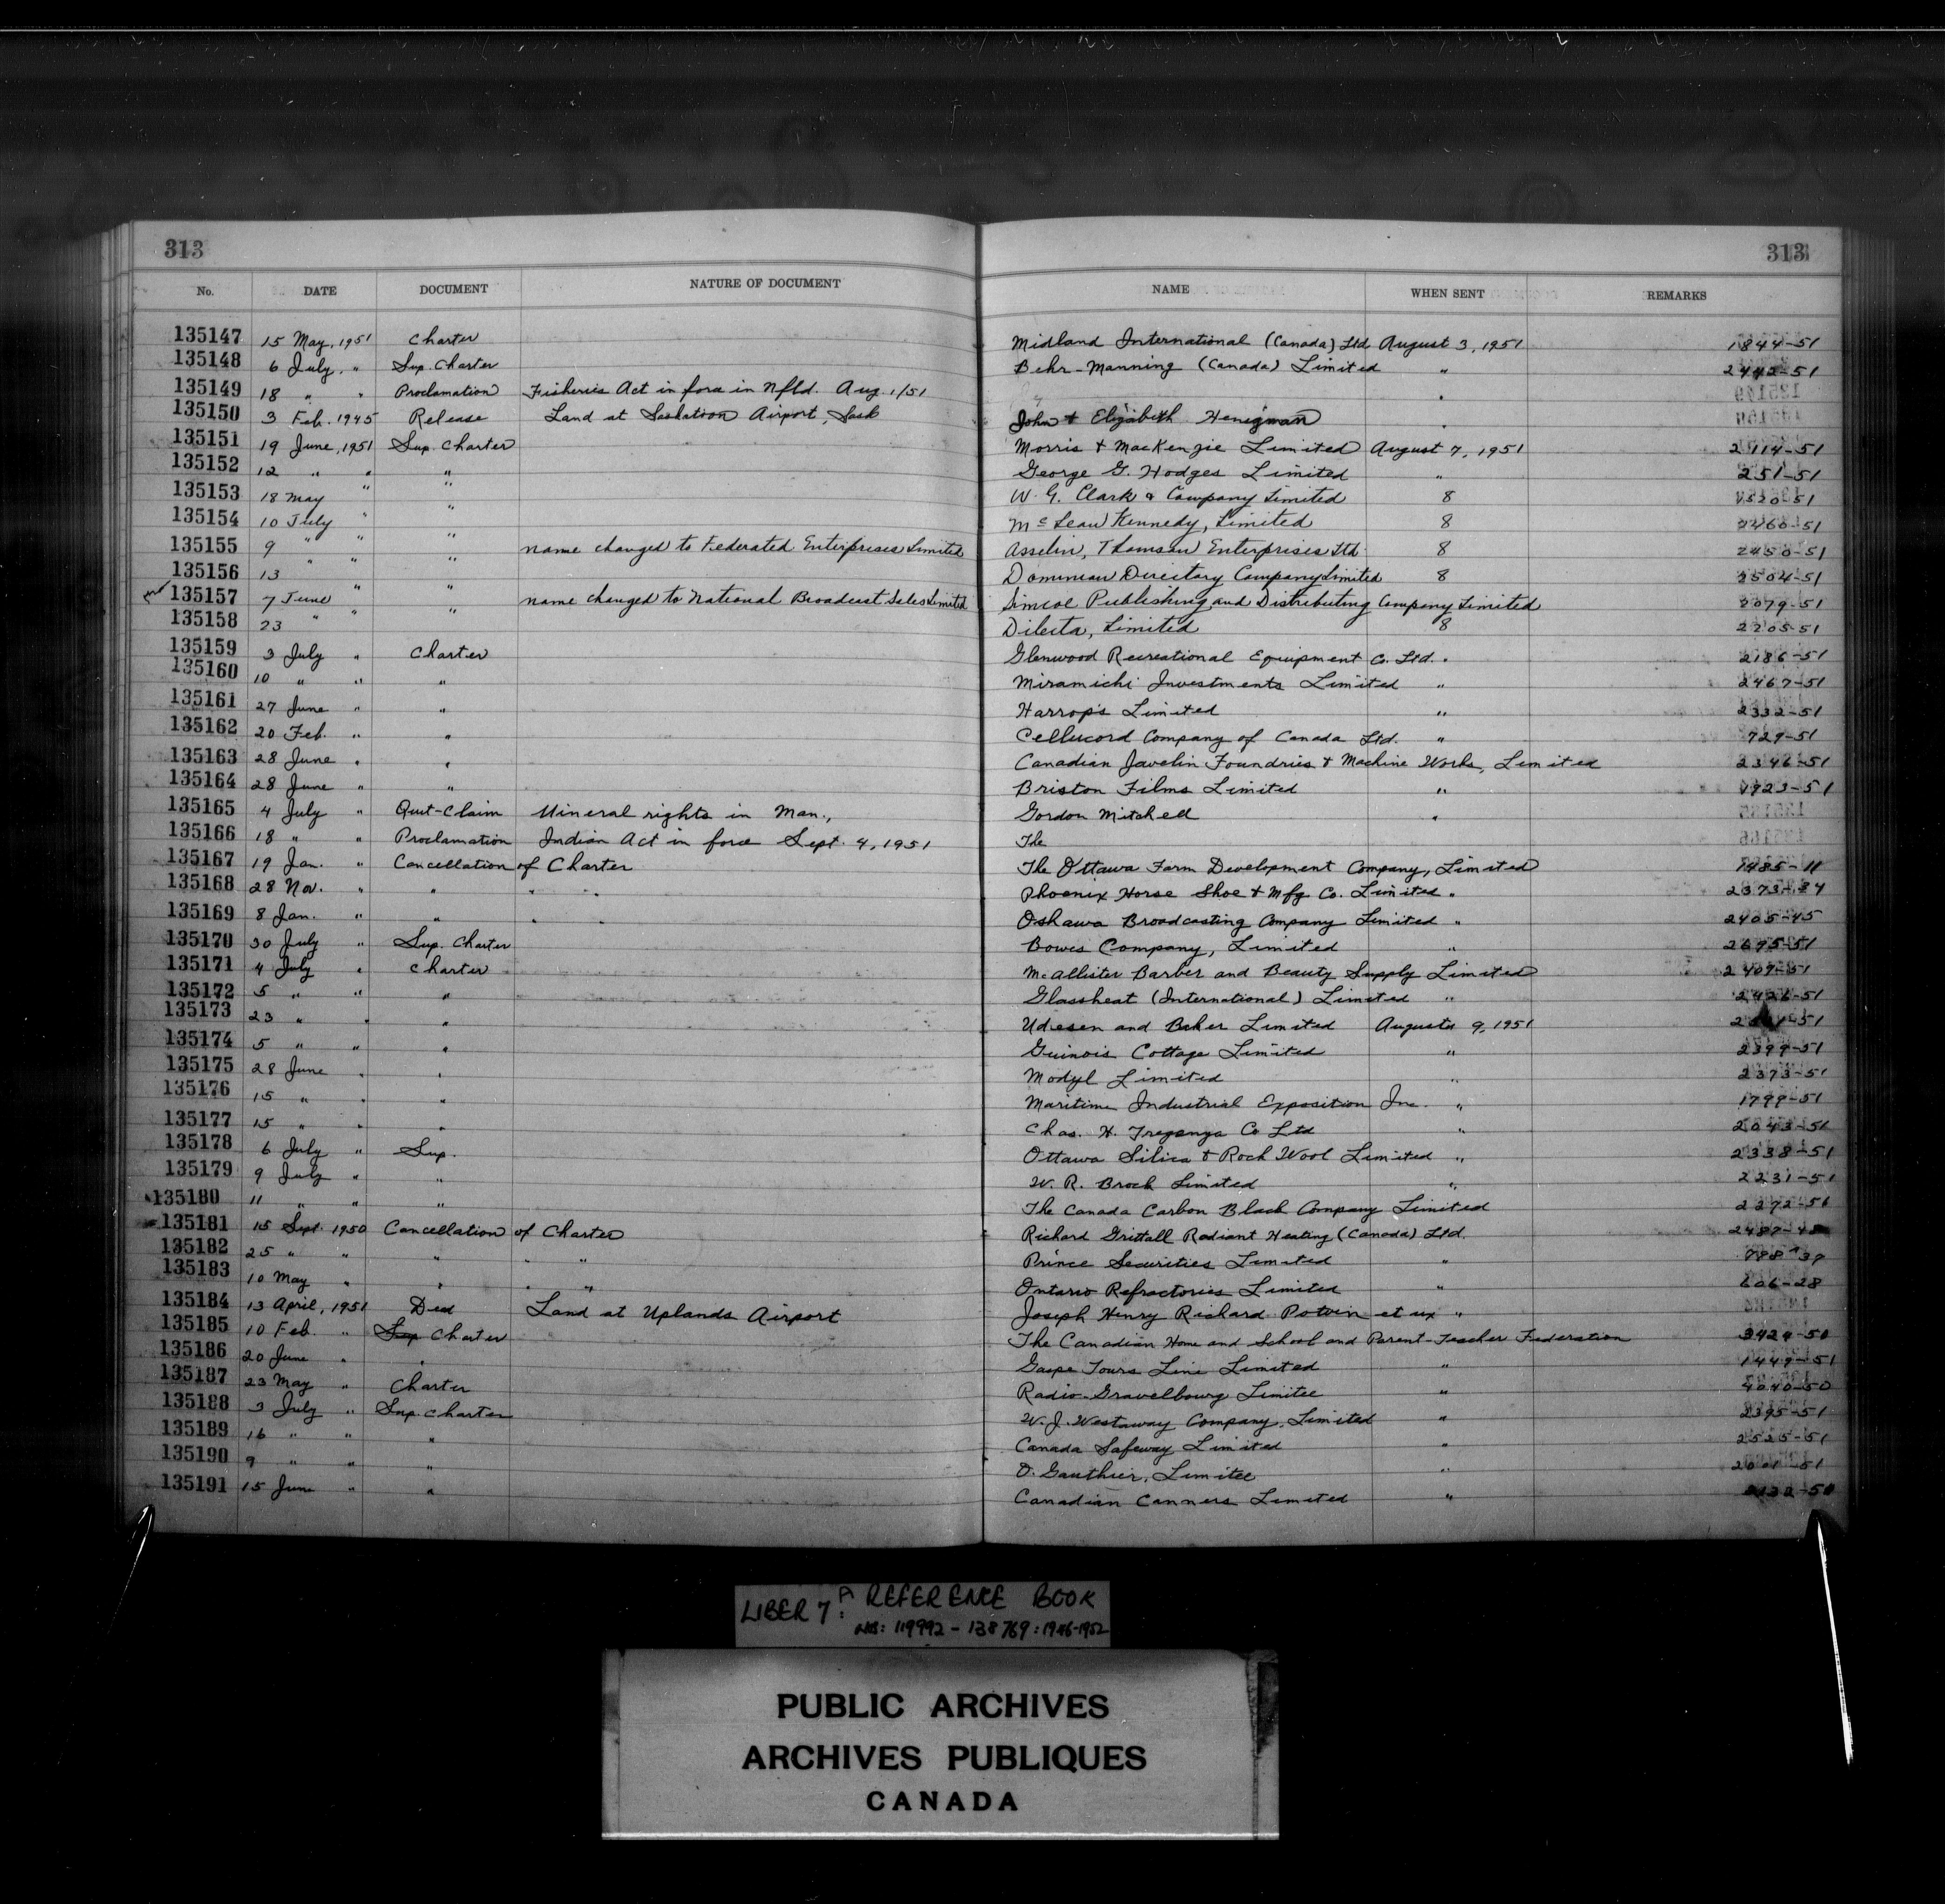 313 313
No. DATE DOCUMENT NATURE OF DOCUMENT NAME WHEN SENT REMARKS
135147 15 May, 1951 Charter Midland International (Canada) Ltd August 3, 1951 1844-51
135148 6 July, " Sup. Charter Behr-Manning (Canada) Limited " 2442-51
135149 18 " " Proclamation Fisheries Act in force in Nfld. Aug. 1/51 "
135150 3 Feb. 1945 Release Land at Saskatoon Airport, Sask John & Elizabeth Henigman "
135151 19 June, 1951 Sup. Charter Morris & MacKenzie Limited August 7, 1951 2114-51
135152 12 " " " George G. Hodges Limited " 251-51
135153 18 May " " W. G. Clark & Company Limited 8 1520-51
135154 10 July " " McLean Kennedy, Limited 8 2460-51
135155 9 " " " name changed to Federated Enterprises Limited Asselin, Thomson Enterprises Ltd. 8 2450-51
135156 13 " " " Dominion Directory Company Limited 8 2504-51
135157 7 June " " name changed to National Broadcast Sales Limited Simcoe Publishing and Distributing Company Limited 2079-51
135158 23 " " " Dilecta, Limited 8 2205-51
135159 3 July " Charter Glenwood Recreational Equipment Co. Ltd. " 2186-51
135160 10 " " " Miramichi Investments Limited " 2467-51
135161 27 June " " Harrop's Limited " 2332-51
135162 20 Feb. " " Cellucord Company of Canada Ltd. " 729-51
135163 28 June " " Canadian Javelin Foundries & Machine Works, Limited 2346-51
135164 28 June " " Briston Films Limited " 1923-51
135165 4 July " Quit-Claim Mineral rights in Man., Gordon Mitchell "
135166 18 " " Proclamation Indian Act in force Sept. 4, 1951 The
135167 19 Jan. " Cancellation of Charter The Ottawa Farm Development Company, Limited 1485-11
135168 28 Nov. " " " " Phoenix Horse Shoe & Mfg Co. Limited " 2373-34
135169 8 Jan. " " " " Oshawa Broadcasting Company Limited " 2405-45
135170 30 July " Sup. Charter Bowes Company, Limited " 2695-51
135171 4 July " Charter McAllister Barber and Beauty Supply Limited 2409-51
135172 5 " " " Glassheat (International) Limited " 2426-51
135173 23 " " " Udesen and Baker Limited Augusta 9, 1951
135174 5 " " " Guinois Cottage Limited " 2399-51
135175 28 June " " Modyl Limited " 2373-51
135176 15 " " " Maritime Industrial Exposition Inc. " 1799-51
135177 15 " " " Chas. H. Tregenza Co Ltd " 2043-51
135178 6 July " Sup. Ottawa Silica & Rock Wool Limited " 2338-51
135179 9 July " " W. R. Brock Limited " 2231-51
135180 11 " " " The Canada Carbon Black Company Limited 2272-51
135181 15 Sept. 1950 Cancellation of Charter Richard Grittall Radiant Heating (Canada) Ltd.
135182 25 " " " " " Prince Securities Limited " 788-39
135183 10 May " " " " Ontario Refractories Limited " 606-28
135184 13 April, 1951 Deed Land at Uplands Airport Joseph Henry Richard Potvin et ux "
135185 10 Feb. " Sup Charter The Canadian Home and School and Parent-Teacher Federation 3424-50
135186 20 June " " Gaspe Tours Line Limited " 1449-51
135187 23 May " Charter Radio-Gravelbourg Limitee " 4040-50
135188 3 July " Sup Charter W. J. Westaway Company, Limited " 2395-51
135189 16 " " " Canada Safeway Limited " 2525-51
135190 9 " " " O. Gauthier, Limitee "
135191 15 June " " Canadian Canners Limited "
LIBER 7: A REFERENCE BOOK
NOS: 119992 - 138769: 1946-1952
PUBLIC ARCHIVES
ARCHIVES PUBLIQUES
CANADA